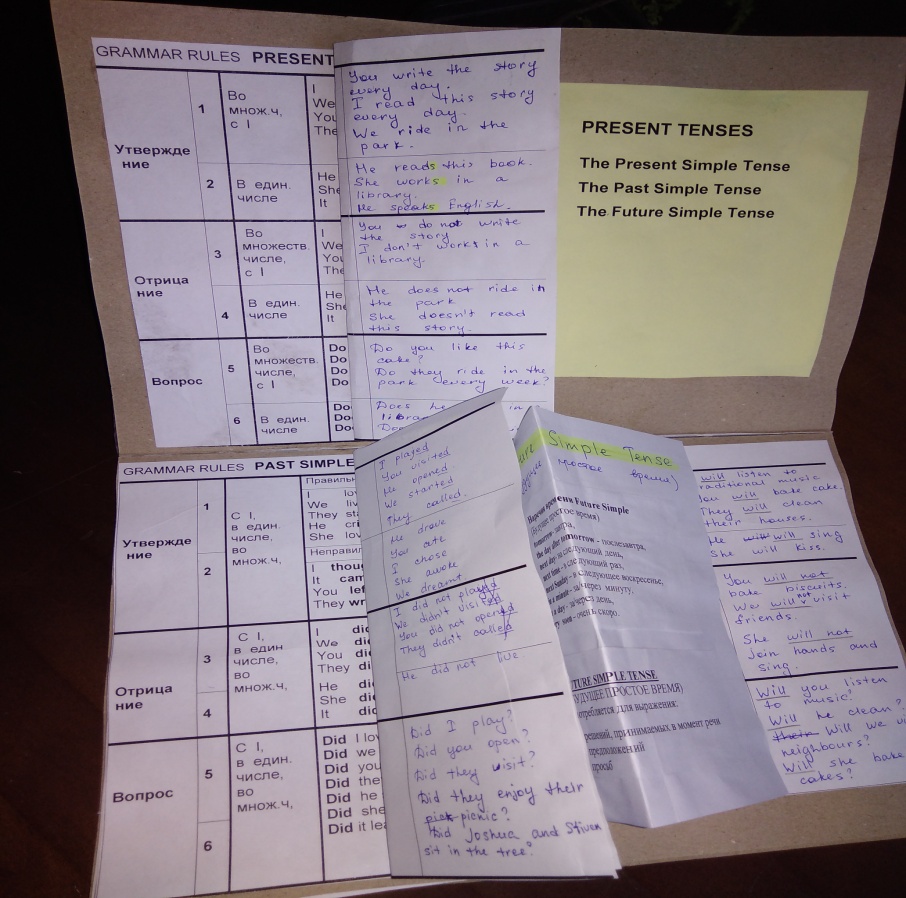 GRAMMAR RULES PRESENT
Утвержде
ние
1
Во
множ.ч,
с I
I
We
You
The
2
В един.
числе
He
She
It
Отрица
ние
3
Во
множеств.
числе,
с I
I
We
You
The
4
В един.
числе
He
She
It
Вопрос
5
Во
множеств.
числе,
с I
Do
Do
Do
Do
6
В един.
числе
Do
Do
You write the story
every day.
I read this story
every day.
We ride in the
park.
He reads this book.
She works in a
library.
He speaks English.
You do not write
the story
I don't works in a
library.
He does not ride in
the park
She doesn't read
this story.
Do you like this
cake?
Do they ride in the
park every week?
Does he in
PRESENT TENSES
The Present Simple Tense
The Past Simple Tense
The Future Simple Tense
GRAMMAR RULES PAST SIMPLE
Утвержде
ние
1
2
С I,
в един.
числе,
во
множ.ч,
I lo
We liv
They sta
He cri
She lov
I thou
It cam
You lef
They wr
Отрица
ние
3
4
С I,
в един
числе,
во
множ.ч,
I did
We did
You di
They di
He di
She di
It did
Вопрос
5
6
С I,
в един.
числе,
во
множ.ч,
Did I lov
Did we
Did you
Did the
Did he
Did she
Did it lea
I played
You visited
He opened.
We started
They called.
He drove
You ate
I chose
She awoke
We dreamt
I did not played
We didn't visited
You did not opened
They didn't called
He did not live.
Did I play?
Did you open?
Did they visit?
Did they enjoy their
pick picnic?
Did Joshua and Stiven
sit in the tree?
ure Simple Tense
простое время)
Наречия времени Future Simple
(будущее простое время)
tomorrow - завтра,
the day after tomorrow - послезавтра,
next day- на следующий день,
next time - в следующий раз,
next Sunday - в следующее воскресенье,
in a minute - через минуту,
in a day - через день,
soon - очень скоро.
TURE SIMPLE TENSE
УДУЩЕЕ ПРОСТОЕ ВРЕМЯ)
отребляется для выражения:
решений, принимаемых в момент речи
предположений
просьб
will listen to
raditional music
You will bake cake.
They will clean
their houses.
He will will sing
She will kiss.
You will not
bake biscuits.
We will not visit
friends.
She will not
join hands and
sing.
Will you listen
to music?
Will he clean?
their Will we vi
neighbours?
Will she bake
cakes?